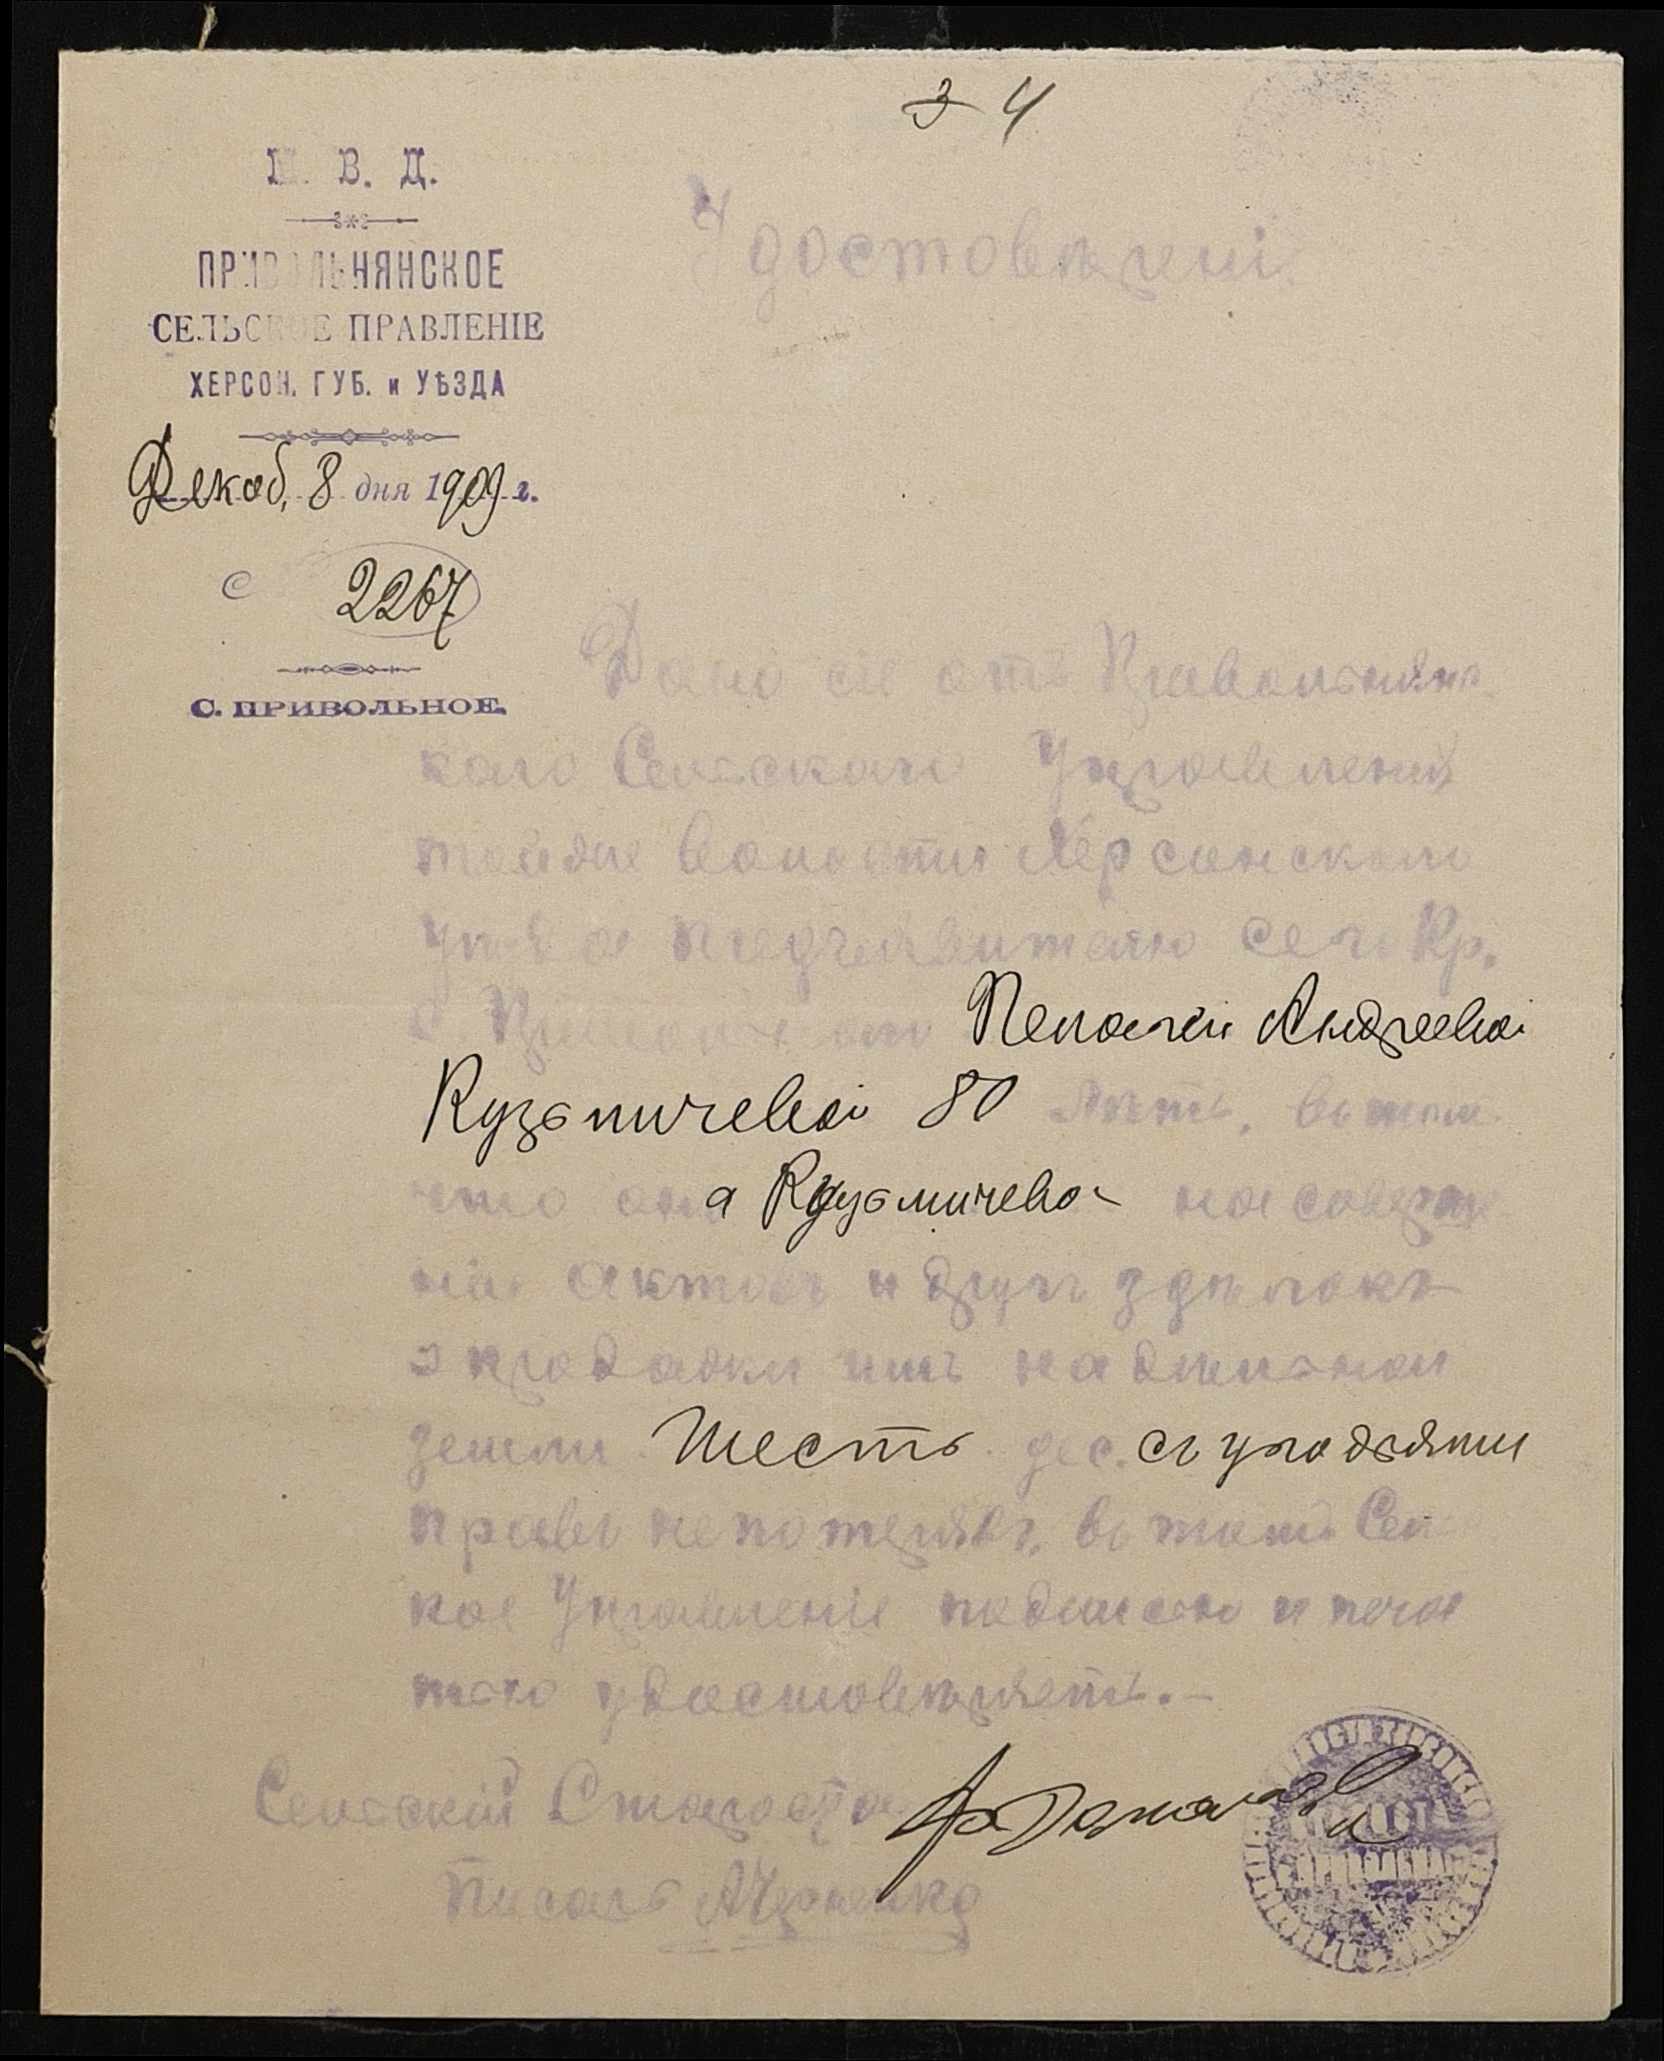 3 4
М. В. Д.
ПРИВОЛЬНЯНСКОЕ
СЕЛЬСКОЕ ПРАВЛЕНІЕ
ХЕРСОН. ГУБ. и УѢЗДА
Декаб. 8 дня 1909 г.
2267
С. ПРИВОЛЬНОЕ.
Удостовѣрені
Дано сіе отъ Привольнянс
каго Сельскаго Управленія
тойже волости Херсонскаго
уѣзда предъявителю сего кр.
с. Привольнаго Пелагеи Андреевой
Кузьмичевой 80 лѣтъ, въ том
что она Кузьмичева на соверше
ніе актовъ и друг. здѣлокъ
о продажи имъ надѣльной
земли Шесть дес. съ угодьями
правъ не потерялъ, въ томъ Сель
кое Управленіе подписью и печа
тью удостовѣряетъ.-
Сельскій Староста
Писарь